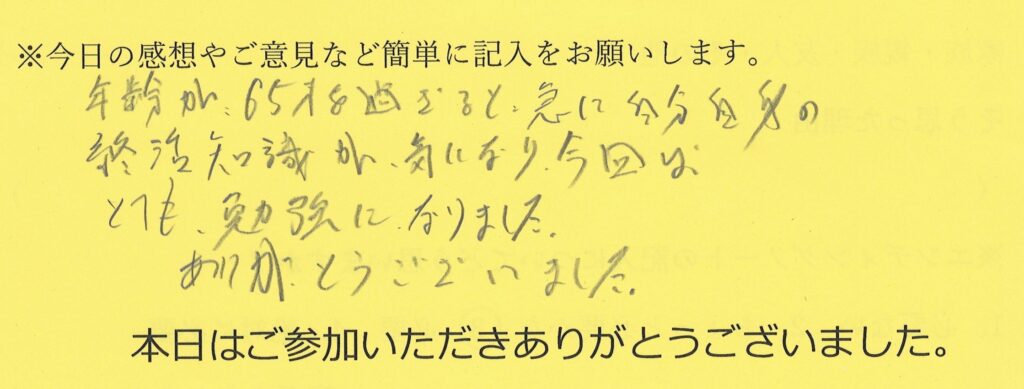 ※今日の感想やご意見など簡単に記入をお願いします。
年齢が、65才を過ぎると、急に自分自身の
終活知識が、気になり、今回は、
とても、勉強になりました。
ありがとうございました。
本日はご参加いただきありがとうございました。